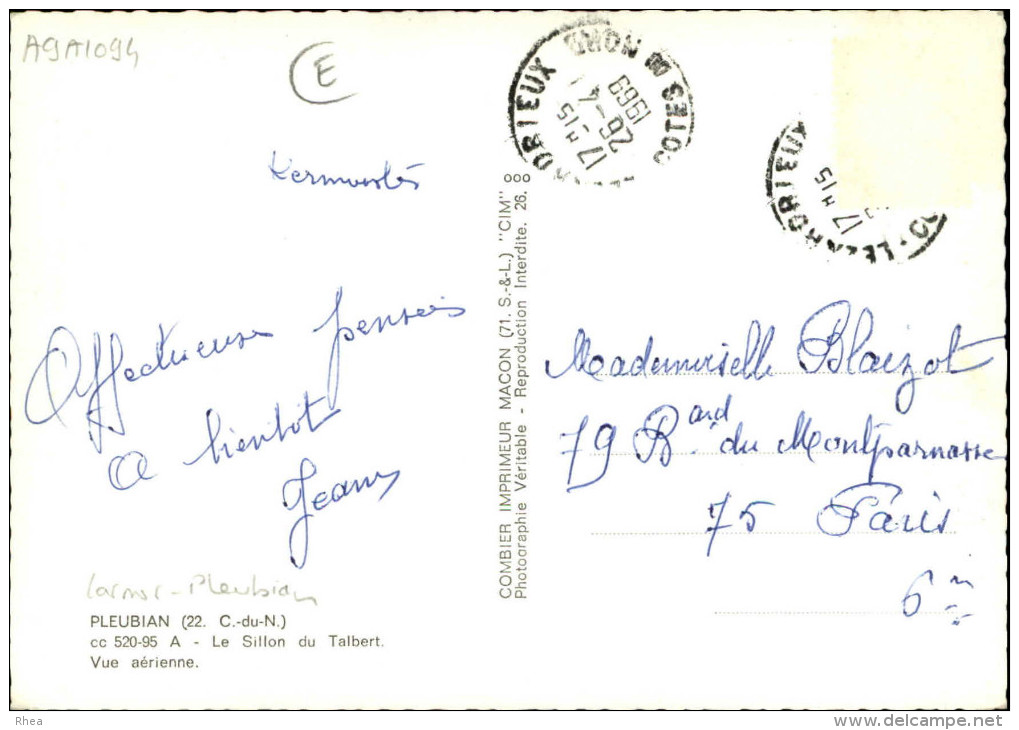 A9A1094
E
LEZARDRIEUX COTES DU NORD
17 H 15
26 - 4
1969
LEZARDRIEUX
17 H 15
Affectueuses pensées
A bientôt
Jean
Larmor - Pleubian
PLEUBIAN (22. C.-du-N.)
cc 520-95 A - Le Sillon du Talbert.
Vue aérienne.
ooo
COMBIER IMPRIMEUR MACON (71. S.-&-L.) "CIM"
Photographie Véritable - Reproduction Interdite. 26.
Mademoiselle Blaizot
79 Bard du Montparnasse
75 Paris
6
Rhea
delcampe.net